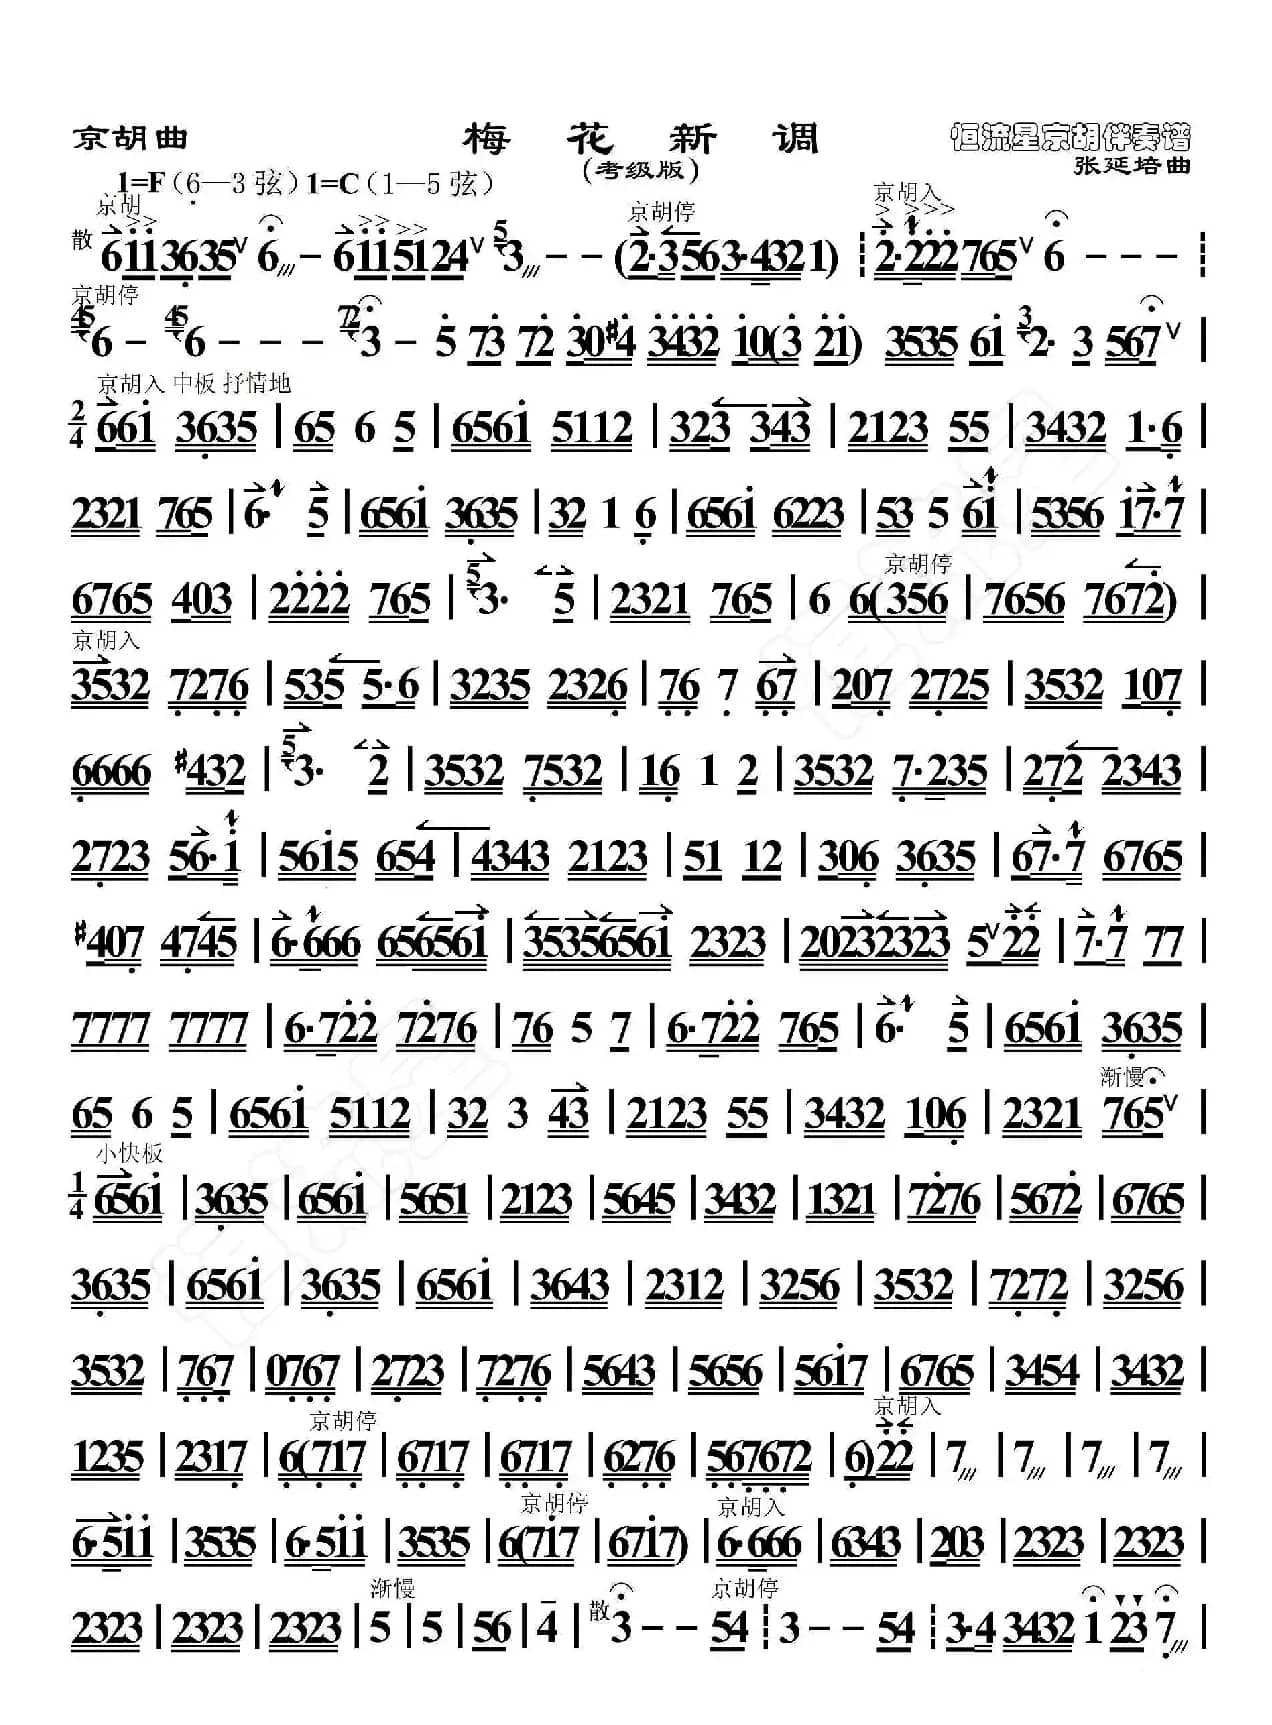 京胡曲 梅花新调 恒流星京胡伴奏谱
(考级版) 张延培曲
1=F(6—3弦)1=C(1—5弦)
京胡 京胡停 京胡入
散 6i i 3635 ∨ 6 /// - - 6i i 5 1 24 ∨ 5 3 /// - - (2·3 563·4321) 2·222765 ∨ 6 - - -
京胡停
45 6 - 45 6 - - - 72 3 - 5 73 72 30#4 3432 i0(3 2i) 3535 6i 3 2· 3 567 ∨ |
京胡入 中板 抒情地
2/4 66i 3635 | 65 6 5 | 656i 5112 | 323 343 | 2123 55 | 3432 1·6 |
2321 765 | 6· 5 | 656i 3635 | 32 1 6 | 656i 6223 | 53 5 6i | 5356 i7·7 |
京胡停
6765 403 | 2222 765 | 5 3· 5 | 2321 765 | 6 6(356 | 7656 7672) |
京胡入
3532 7276 | 535 5·6 | 3235 2326 | 76 7 67 | 207 2725 | 3532 107 |
6666 #432 | 5 3· 2 | 3532 7532 | 16 1 2 | 3532 7·235 | 272 2343 |
2723 56·i | 56i5 654 | 4343 2123 | 51 12 | 306 3635 | 67·7 6765 |
#407 4745 | 6·666 656561 | 35356561 2323 | 20232323 5 ∨ 22 | 7·7 77 |
7777 7777 | 6·722 7276 | 76 5 7 | 6·722 765 | 6· 5 | 656i 3635 |
渐慢
65 6 5 | 656i 5112 | 32 3 43 | 2123 55 | 3432 106 | 2321 765 ∨ |
小快板
1/4 656i | 3635 | 656i | 5651 | 2123 | 5645 | 3432 | 1321 | 7276 | 5672 | 6765 |
3635 | 656i | 3635 | 656i | 3643 | 2312 | 3256 | 3532 | 7272 | 3256 |
3532 | 767 | 0767 | 2723 | 7276 | 5643 | 5656 | 56i7 | 6765 | 3454 | 3432 |
京胡停 京胡入
1235 | 2317 | 6(717 | 6717 | 6717 | 6276 | 567672 | 6)22 | 7 /// | 7 /// | 7 /// | 7 /// |
京胡停 京胡入
6·5ii | 3535 | 6·5ii | 3535 | 6(7i7 | 67i7) | 6·666 | 6343 | 203 | 2323 | 2323 |
渐慢 京胡停
2323 | 2323 | 2323 | 5 | 5 | 56 | 4 | 散 3 - - 54 3 - - 54 3·4 3432 1 23 7 /// |